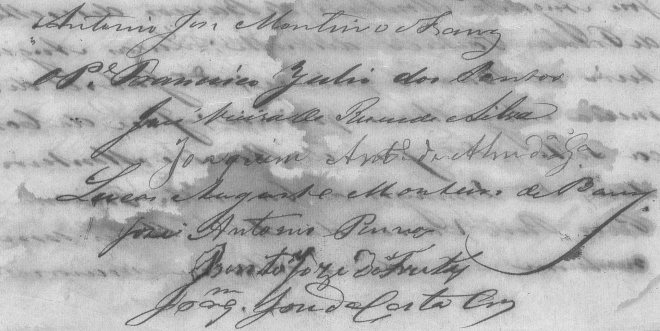 Antonio Jose Monteiro de Barros
O P.e Francisco Julio dos Santos
José Rezende Silva
Joaquim Ant.o de
Lucas Augusto Monteiro de Barros
José Antonio
Bento Joze de Freitas
Joaq.m Jose da Costa Cruz